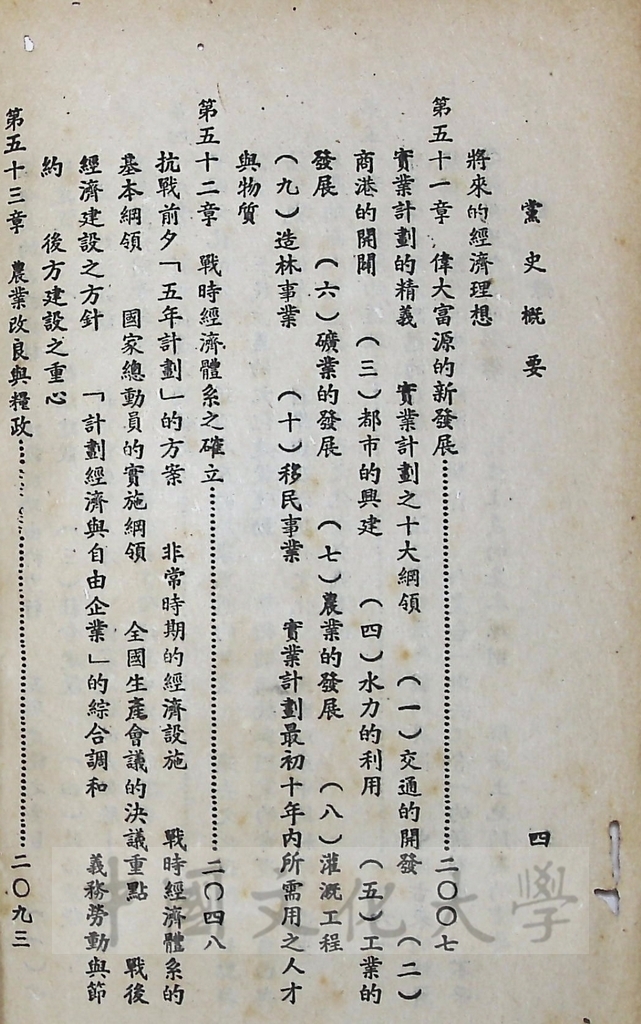 黨史概要
四
將來的經濟理想
第五十一章 偉大富源的新發展……………………二〇〇七
實業計劃的精義 實業計劃之十大綱領 （一）交通的開發 （二）
商港的開闢 （三）都市的興建 （四）水力的利用 （五）工業的
發展 （六）礦業的發展 （七）農業的發展 （八）灌溉工程
（九）造林事業 （十）移民事業 實業計劃最初十年內所需用之人才
與物質
第五十二章 戰時經濟體系之確立……………………二〇四八
抗戰前夕「五年計劃」的方案 非常時期的經濟設施 戰時經濟體系的
基本綱領 國家總動員的實施綱領 全國生產會議的決議重點 戰後
經濟建設之方針 「計劃經濟與自由企業」的綜合調和 義務勞動與節
約 後方建設之重心
第五十三章 農業改良與糧政……………………二〇九三
中國文化大學